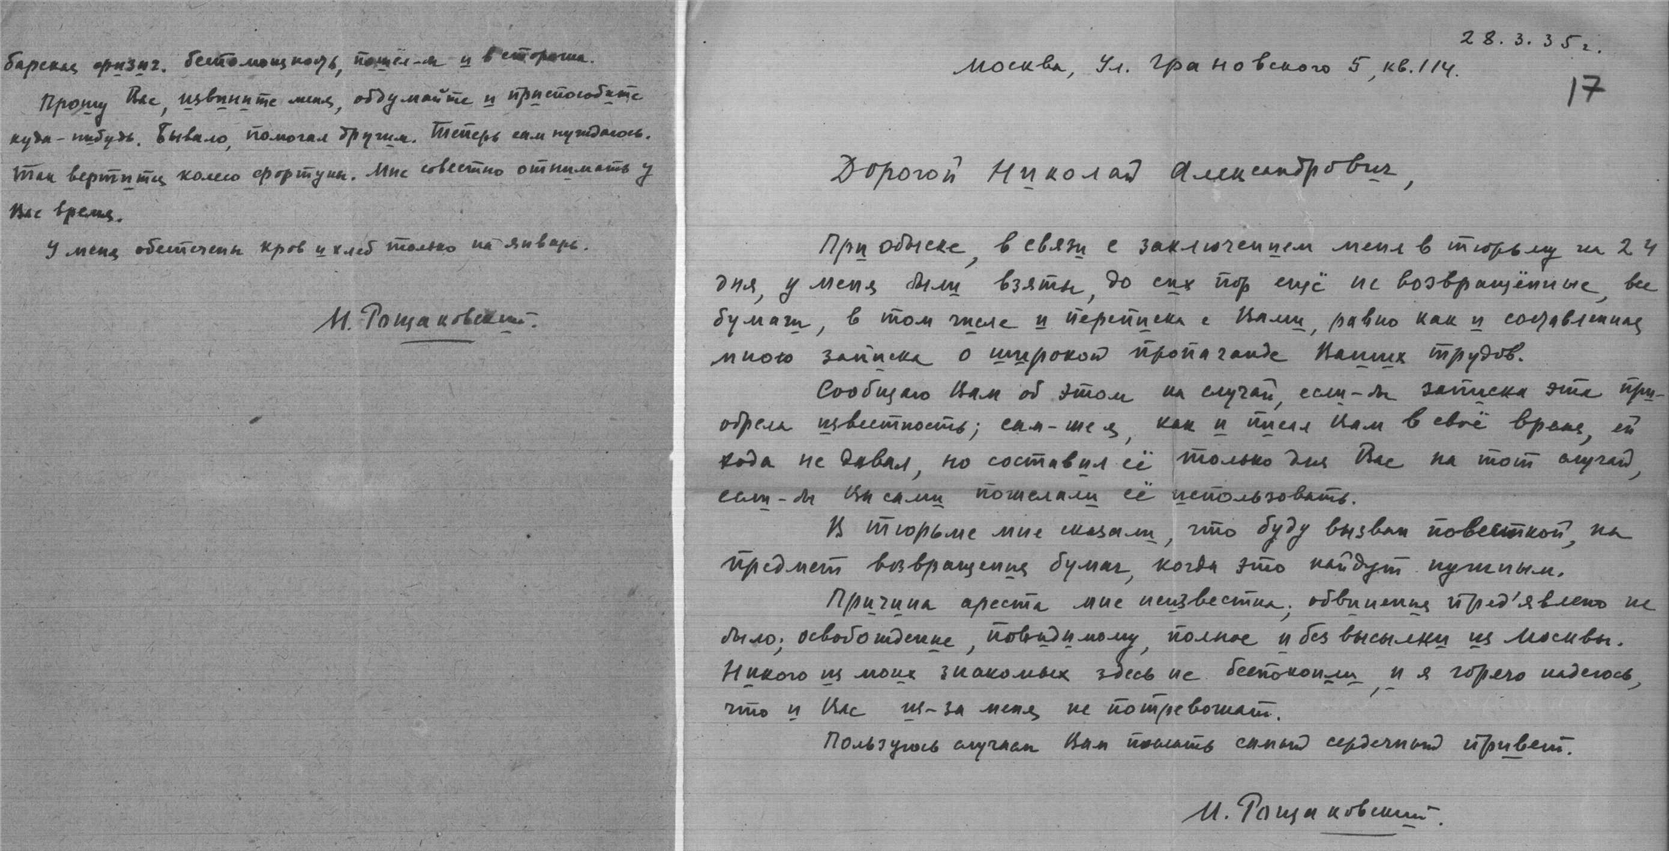 барская физич. беспомощность, пошёл-бы и в сторожа.
Прошу Вас, извините меня, обдумайте и приспособьте
куда-нибудь. Бывало, помогал другим. Теперь сам нуждаюсь.
Так вертится колесо фортуны. Мне совестно отнимать у
Вас время.
У меня обеспечены кров и хлеб только на январь.
М. Рощаковский.
28.3.35 г.
Москва, Ул. Грановского 5, кв. 114.
17
Дорогой Николай Александрович,
При обыске, в связи с заключением меня в тюрьму на 24
дня, у меня были взяты, до сих пор ещё не возвращённые, все
бумаги, в том числе и переписка с Вами, равно как и составленная
мною записка о широкой пропаганде Ваших трудов.
Сообщаю Вам об этом на случай, если-бы записка эта при-
обрела известность; сам-же я, как и писал Вам в своё время, ей
хода не давал, но составил её только для Вас на тот случай,
если-бы Вы сами пожелали её использовать.
В тюрьме мне сказали, что буду вызван повесткой, на
предмет возвращения бумаг, когда это найдут нужным.
Причина ареста мне неизвестна; обвинения пред'явлено не
было; освобождение, повидимому, полное и без высылки из Москвы.
Никого из моих знакомых здесь не беспокоили, и я горячо надеюсь,
что и Вас из-за меня не потревожат.
Пользуюсь случаем Вам послать самый сердечный привет.
М. Рощаковский.